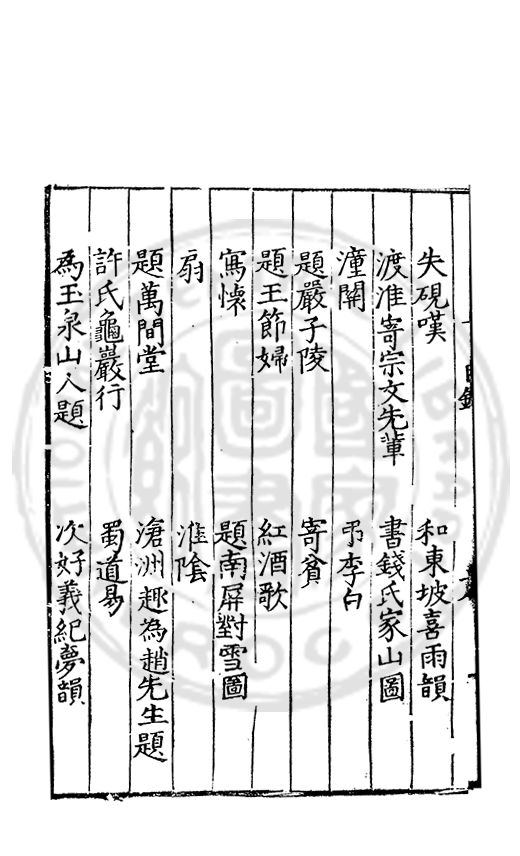 失硯嘆　和東坡喜雨韻
渡淮寄宗文先軰　書錢氏家山圖
潼關　弔李白
題嚴子陵　寄貧
題王節婦　紅酒歌
寫懷　題南屏對雪圖
扇　淮陰
題萬間堂　滄洲趣為趙先生題
許氏龜巖行　蜀道易
為玉泉山人題　次好義紀夢韻